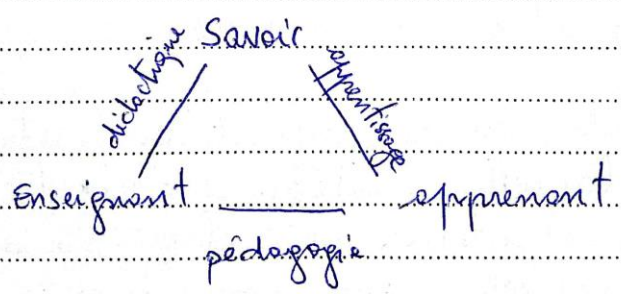 Savoir
didactique
apprentissage
Enseignant apprenant
pédagogie